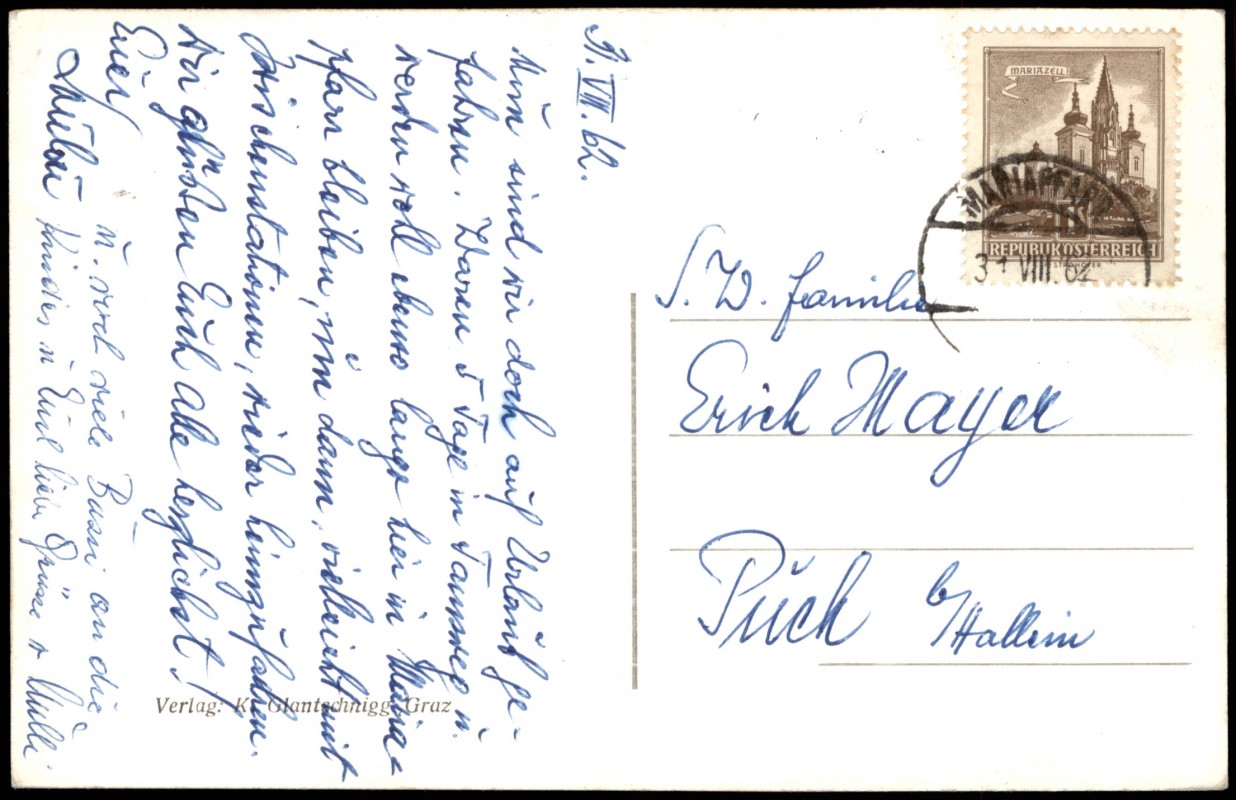 VIII. 62.
Nun sind wir doch auf Urlaub ge-
fahren. Waren 5 Tage in Tamsweg u.
werden wohl ebenso lange hier in Maria-
pfarr bleiben, um dann, vielleicht mit
Zwischenstationen, wieder heimzufahren.
Wir grüßen Euch alle herzlichst!
Euer
u. noch viele Bussi an die
Kinder u Euch liebe Grüsse v
Verlag: K. Glantschnigg, Graz
MARIAZELL
REPUBLIK ÖSTERREICH
MARIAPFARR
31 VIII. 62
S. W. Familie
Erich Mayer
Puch b/Hallein